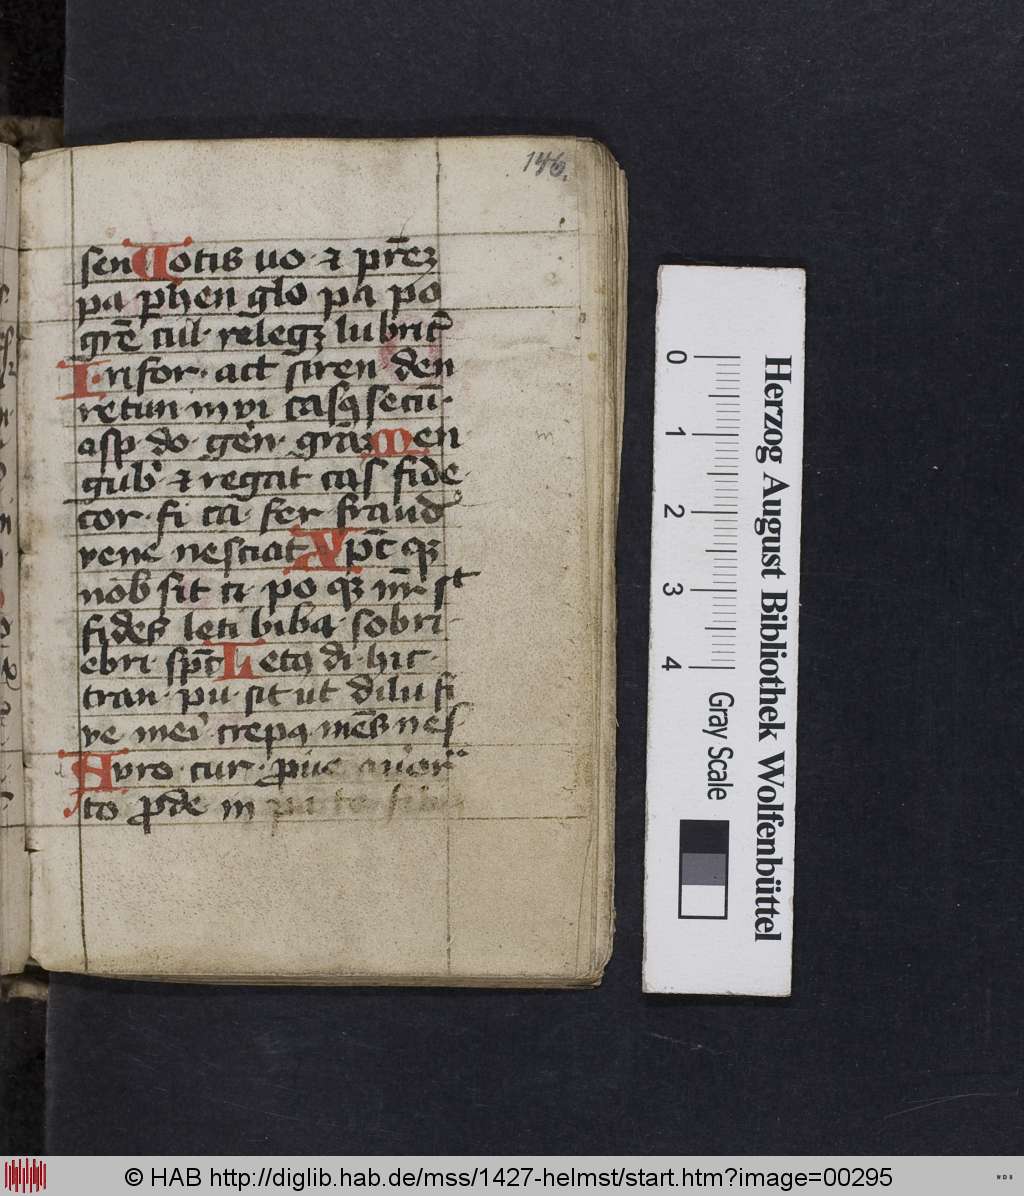 146.
sen Uotis uo · ⁊ pr̄eꝫ
pa perhen glo pa po
gr̄e cul · relegꝫ lubric̄
Irifor · act stren den
retun in vi casꝯ secū ·
asp · do · gen̄ · grāꝫ Men
gub̄ ⁊ regat cas fide ·
cor · fi ca · fer fraud̄
vene nesciat Xp̄c qꝫ
nob̄ sit ci po qꝫ nr̄ st
fides leti biba · sobri ·
ebri · sp̄c Letꝯ di · hic ·
tran · pu · sit ut dilu fi
ve mei crepꝯ mēs nes
Auro · cur · prove
to prode in
0
1
2
3
4
Gray Scale
Herzog August Bibliothek Wolfenbüttel
© HAB http://diglib.hab.de/mss/1427-helmst/start.htm?image=00295